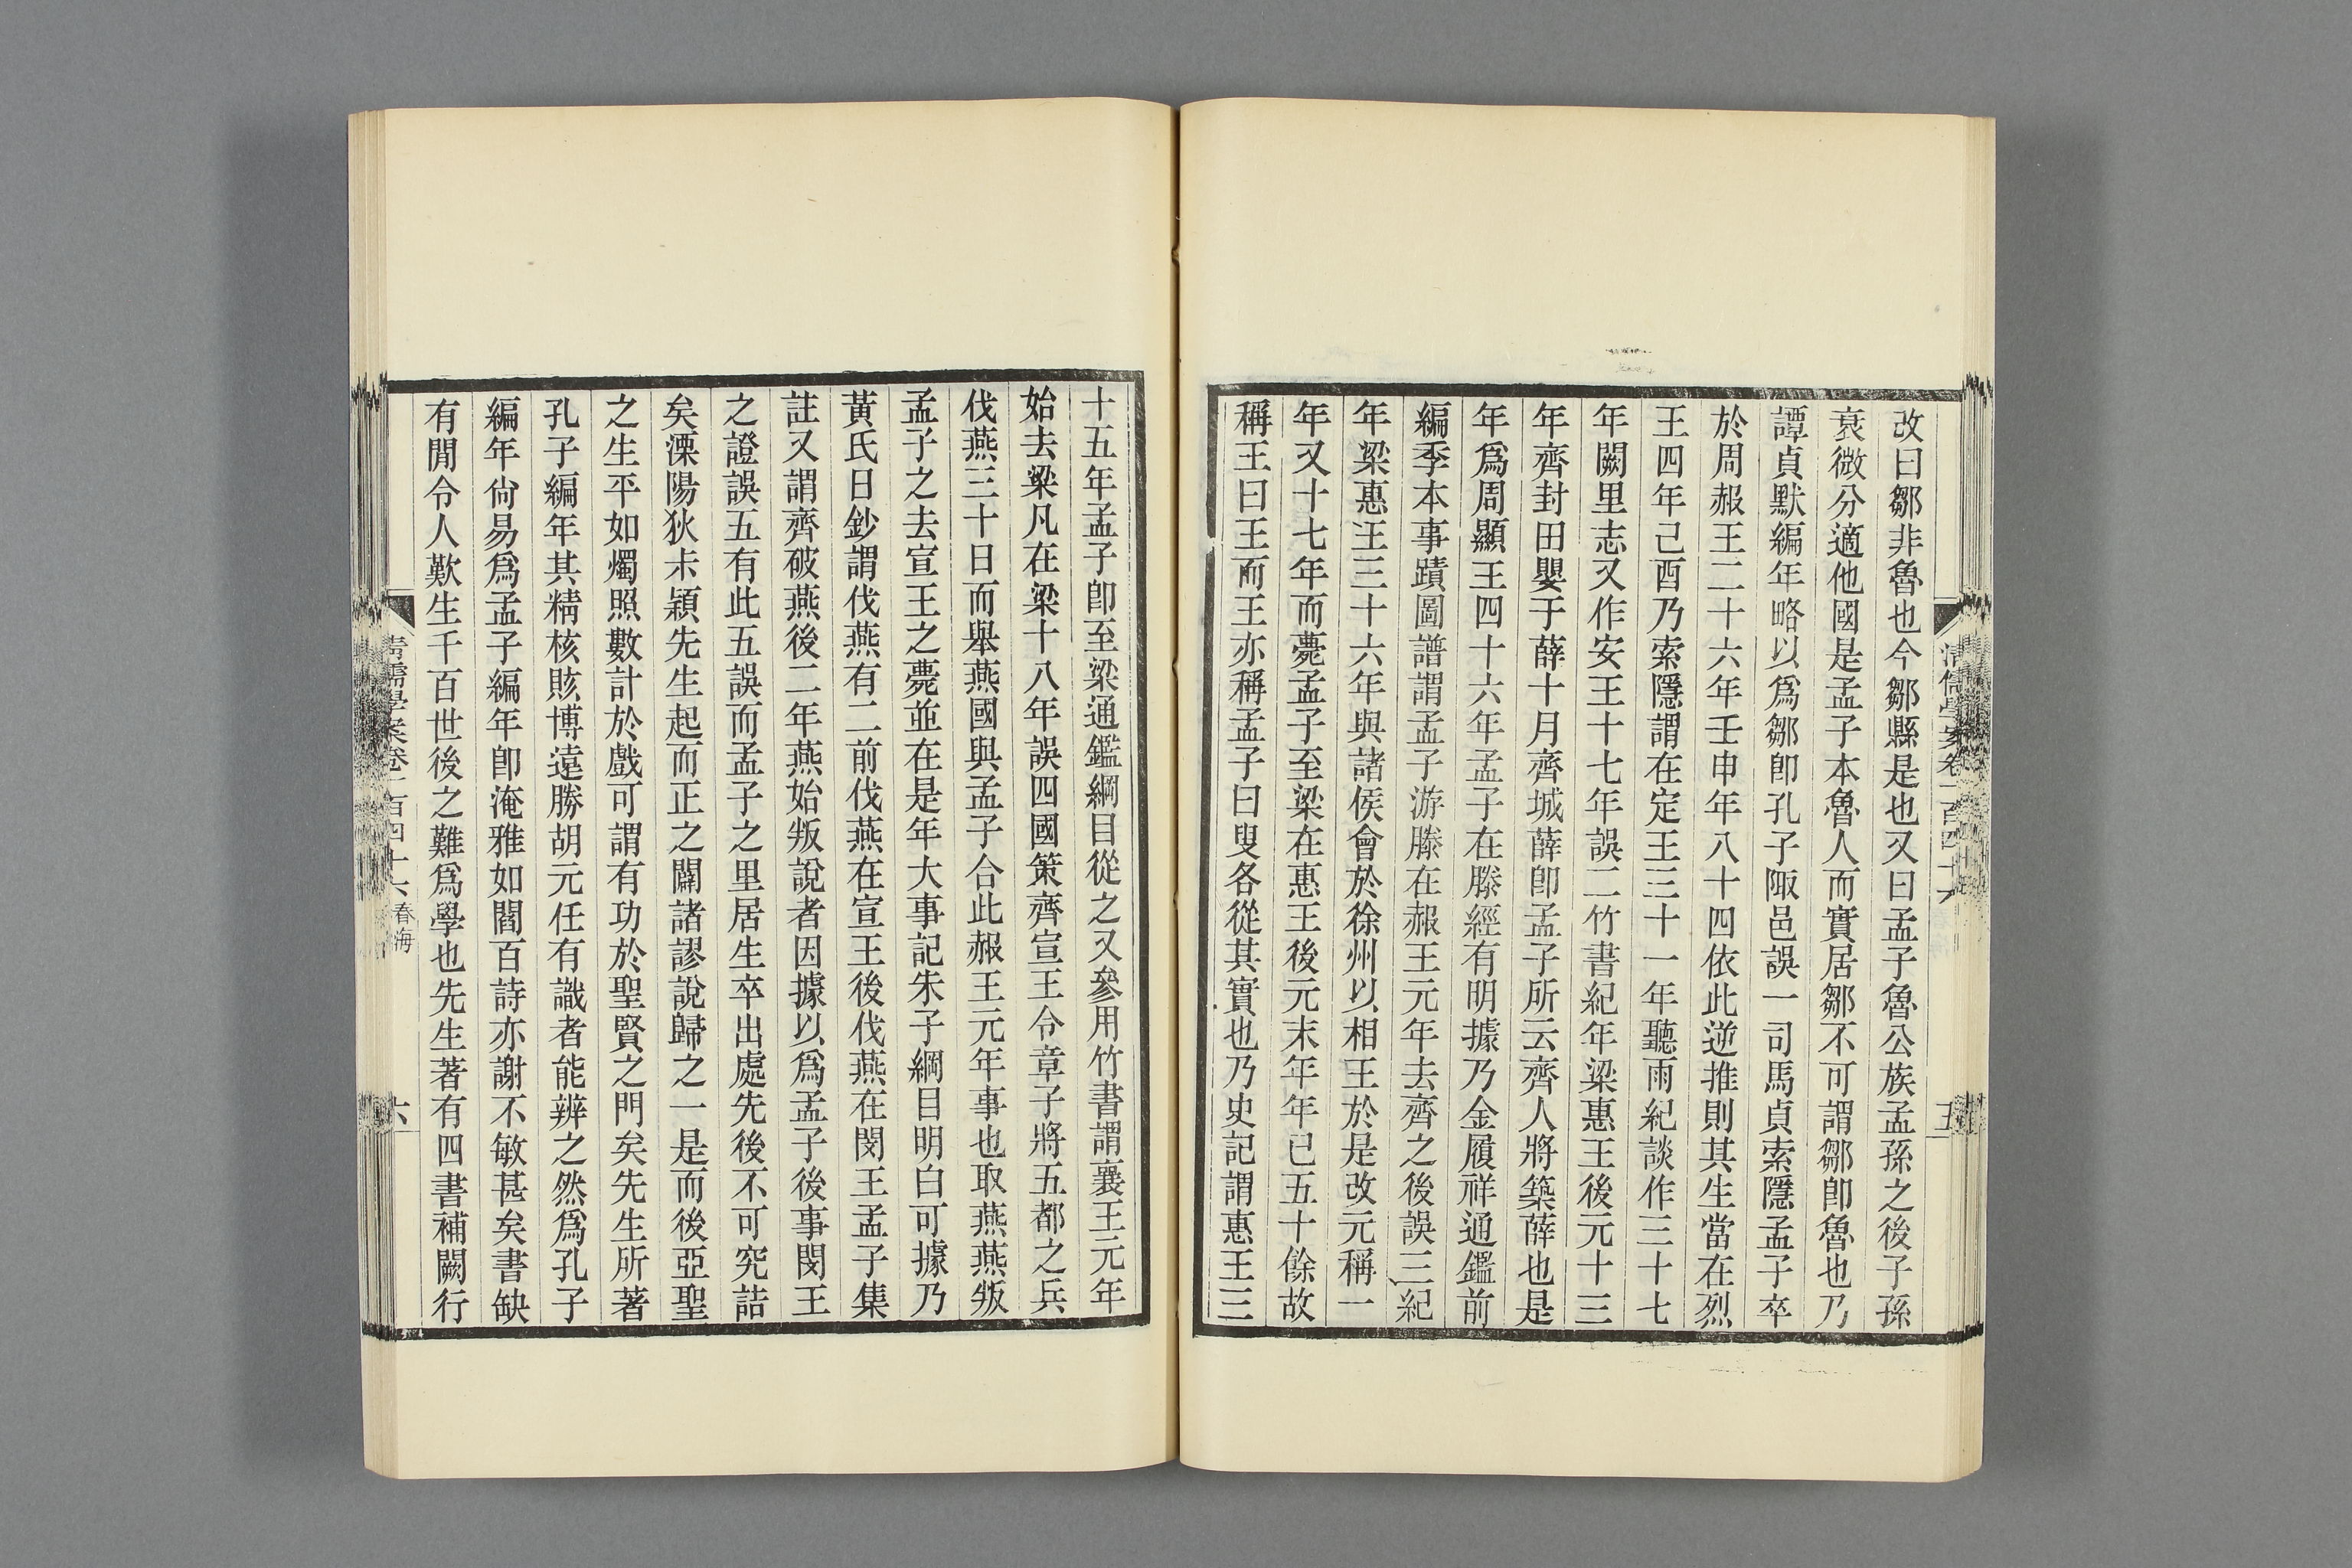 清儒學案卷一百四十六
五
改曰鄒非魯也今鄒縣是也又曰孟子魯公族孟孫之後子孫
衰微分適他國是孟子本魯人而實居鄒不可謂鄒卽魯也乃
譚貞默編年略以爲鄒卽孔子陬邑誤一司馬貞索隱孟子卒
於周赧王二十六年壬申年八十四依此逆推則其生當在烈
王四年己酉乃索隱謂在定王三十一年聽雨紀談作三十七
年闕里志又作安王十七年誤二竹書紀年梁惠王後元十三
年齊封田嬰于薛十月齊城薛卽孟子所云齊人將築薛也是
年爲周顯王四十六年孟子在滕經有明據乃金履祥通鑑前
編季本事蹟圖譜謂孟子游滕在赧王元年去齊之後誤三紀
年梁惠王三十六年與諸侯會於徐州以相王於是改元稱一
年又十七年而薨孟子至梁在惠王後元末年年已五十餘故
稱王曰王而王亦稱孟子曰叟各從其實也乃史記謂惠王三
十五年孟子卽至梁通鑑綱目從之又參用竹書謂襄王元年
始去梁凡在梁十八年誤四國策齊宣王令章子將五都之兵
伐燕三十日而舉燕國與孟子合此赧王元年事也取燕燕叛
孟子之去宣王之薨並在是年大事記朱子綱目明白可據乃
黃氏日鈔謂伐燕有二前伐燕在宣王後伐燕在閔王孟子集
註又謂齊破燕後二年燕始叛說者因據以爲孟子後事閔王
之證誤五有此五誤而孟子之里居生卒出處先後不可究詰
矣溧陽狄尗穎先生起而正之闢諸謬說歸之一是而後亞聖
之生平如燭照數計於戲可謂有功於聖賢之門矣先生所著
孔子編年其精核賅博遠勝胡元任有識者能辨之然爲孔子
編年尙易爲孟子編年卽淹雅如閻百詩亦謝不敏甚矣書缺
有閒令人歎生千百世後之難爲學也先生著有四書補闕行
清儒學案卷一百四十六 春海
六